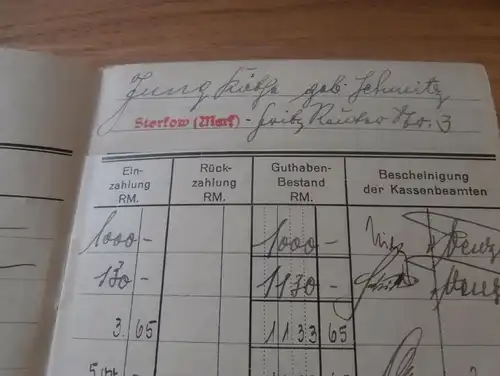 Jung Käthe geb. Schmitz
Storkow (Mark) - Fritz Reuter Str. 3
Ein-
zahlung
RM.
Rück-
zahlung
RM.
Guthaben-
Bestand
RM.
Bescheinigung
der Kassenbeamten
1000 - 1000 -
130 - 1130 -
3. 65 1133 65